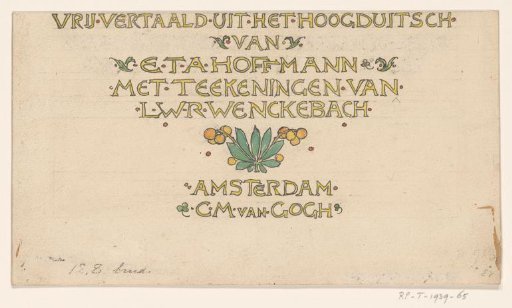 VRIJ·VERTAALD·UIT·HET·HOOGDUITSCH·
·VAN·
·E·T·A·HOFFMANN·
·MET·TEEKENINGEN·VAN·
·L·W·R·WENCKEBACH·
·AMSTERDAM·
·C·M·VAN·GOGH·
RP-T-1939-65